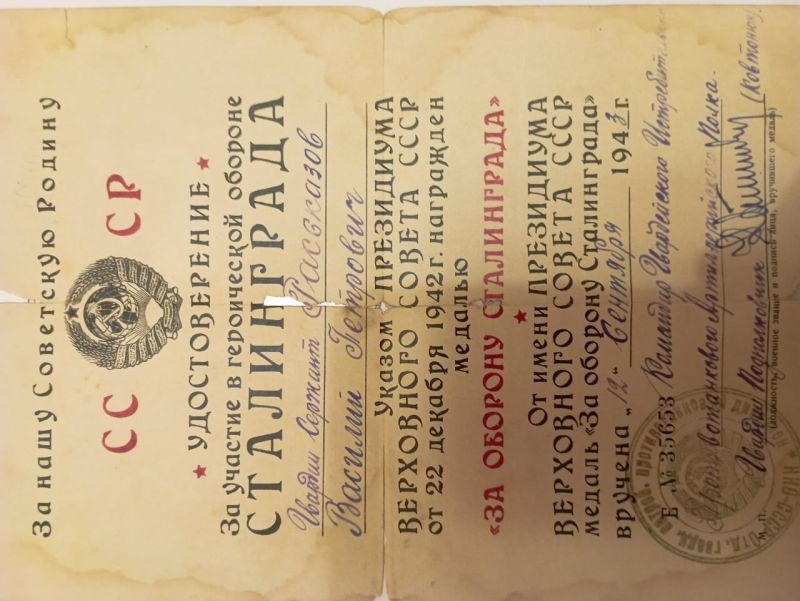 За нашу Советскую Родину
СС СР
УДОСТОВЕРЕНИЕ
За участие в героической обороне
СТАЛИНГРАДА
Гвардии Сержант Рассказов
Василий Петрович
Указом ПРЕЗИДИУМА
ВЕРХОВНОГО СОВЕТА СССР
от 22 декабря 1942 г. награжден
медалью
«ЗА ОБОРОНУ СТАЛИНГРАДА»
От имени ПРЕЗИДИУМА
ВЕРХОВНОГО СОВЕТА СССР
медаль «За оборону Сталинграда»
вручена „12“ Сентября 1943 г.
Е № 35653 Командир Гвардейского Истребительно
Противотанкового Артиллерийского Полка.
Гвардии Подполковник (Ковтонюк)
М. П. (должность, военное звание и подпись лица, вручившего медаль)